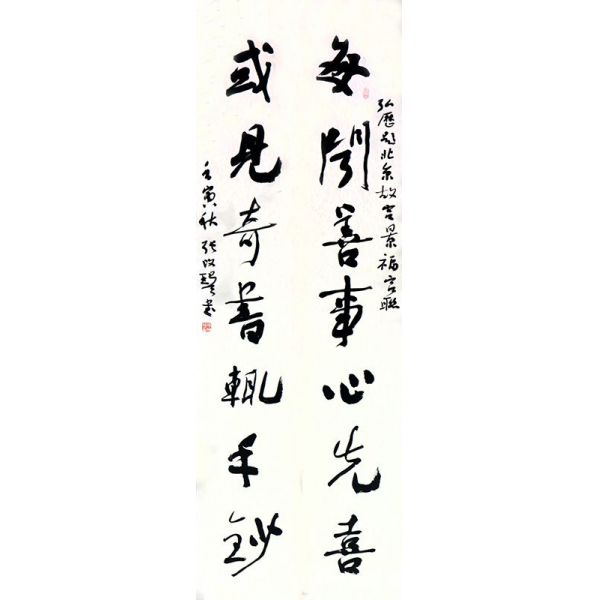 弘歷題北京故宮景福宮聯
每聞善事心先喜
或見奇書輒手鈔
壬寅秋 張改琴書